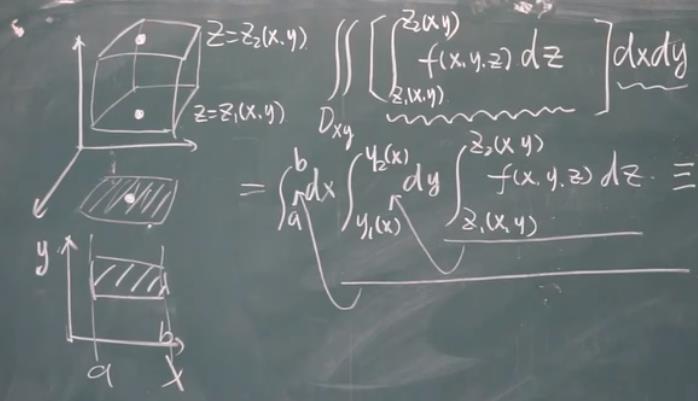 z=z₂(x,y)
z=z₁(x,y)
∬_{D_{xy}} [∫_{z₁(x,y)}^{z₂(x,y)} f(x,y,z) dz] dxdy
= ∫_a^b dx ∫_{y₁(x)}^{y₂(x)} dy ∫_{z₁(x,y)}^{z₂(x,y)} f(x,y,z) dz. 三
y
a
b
x